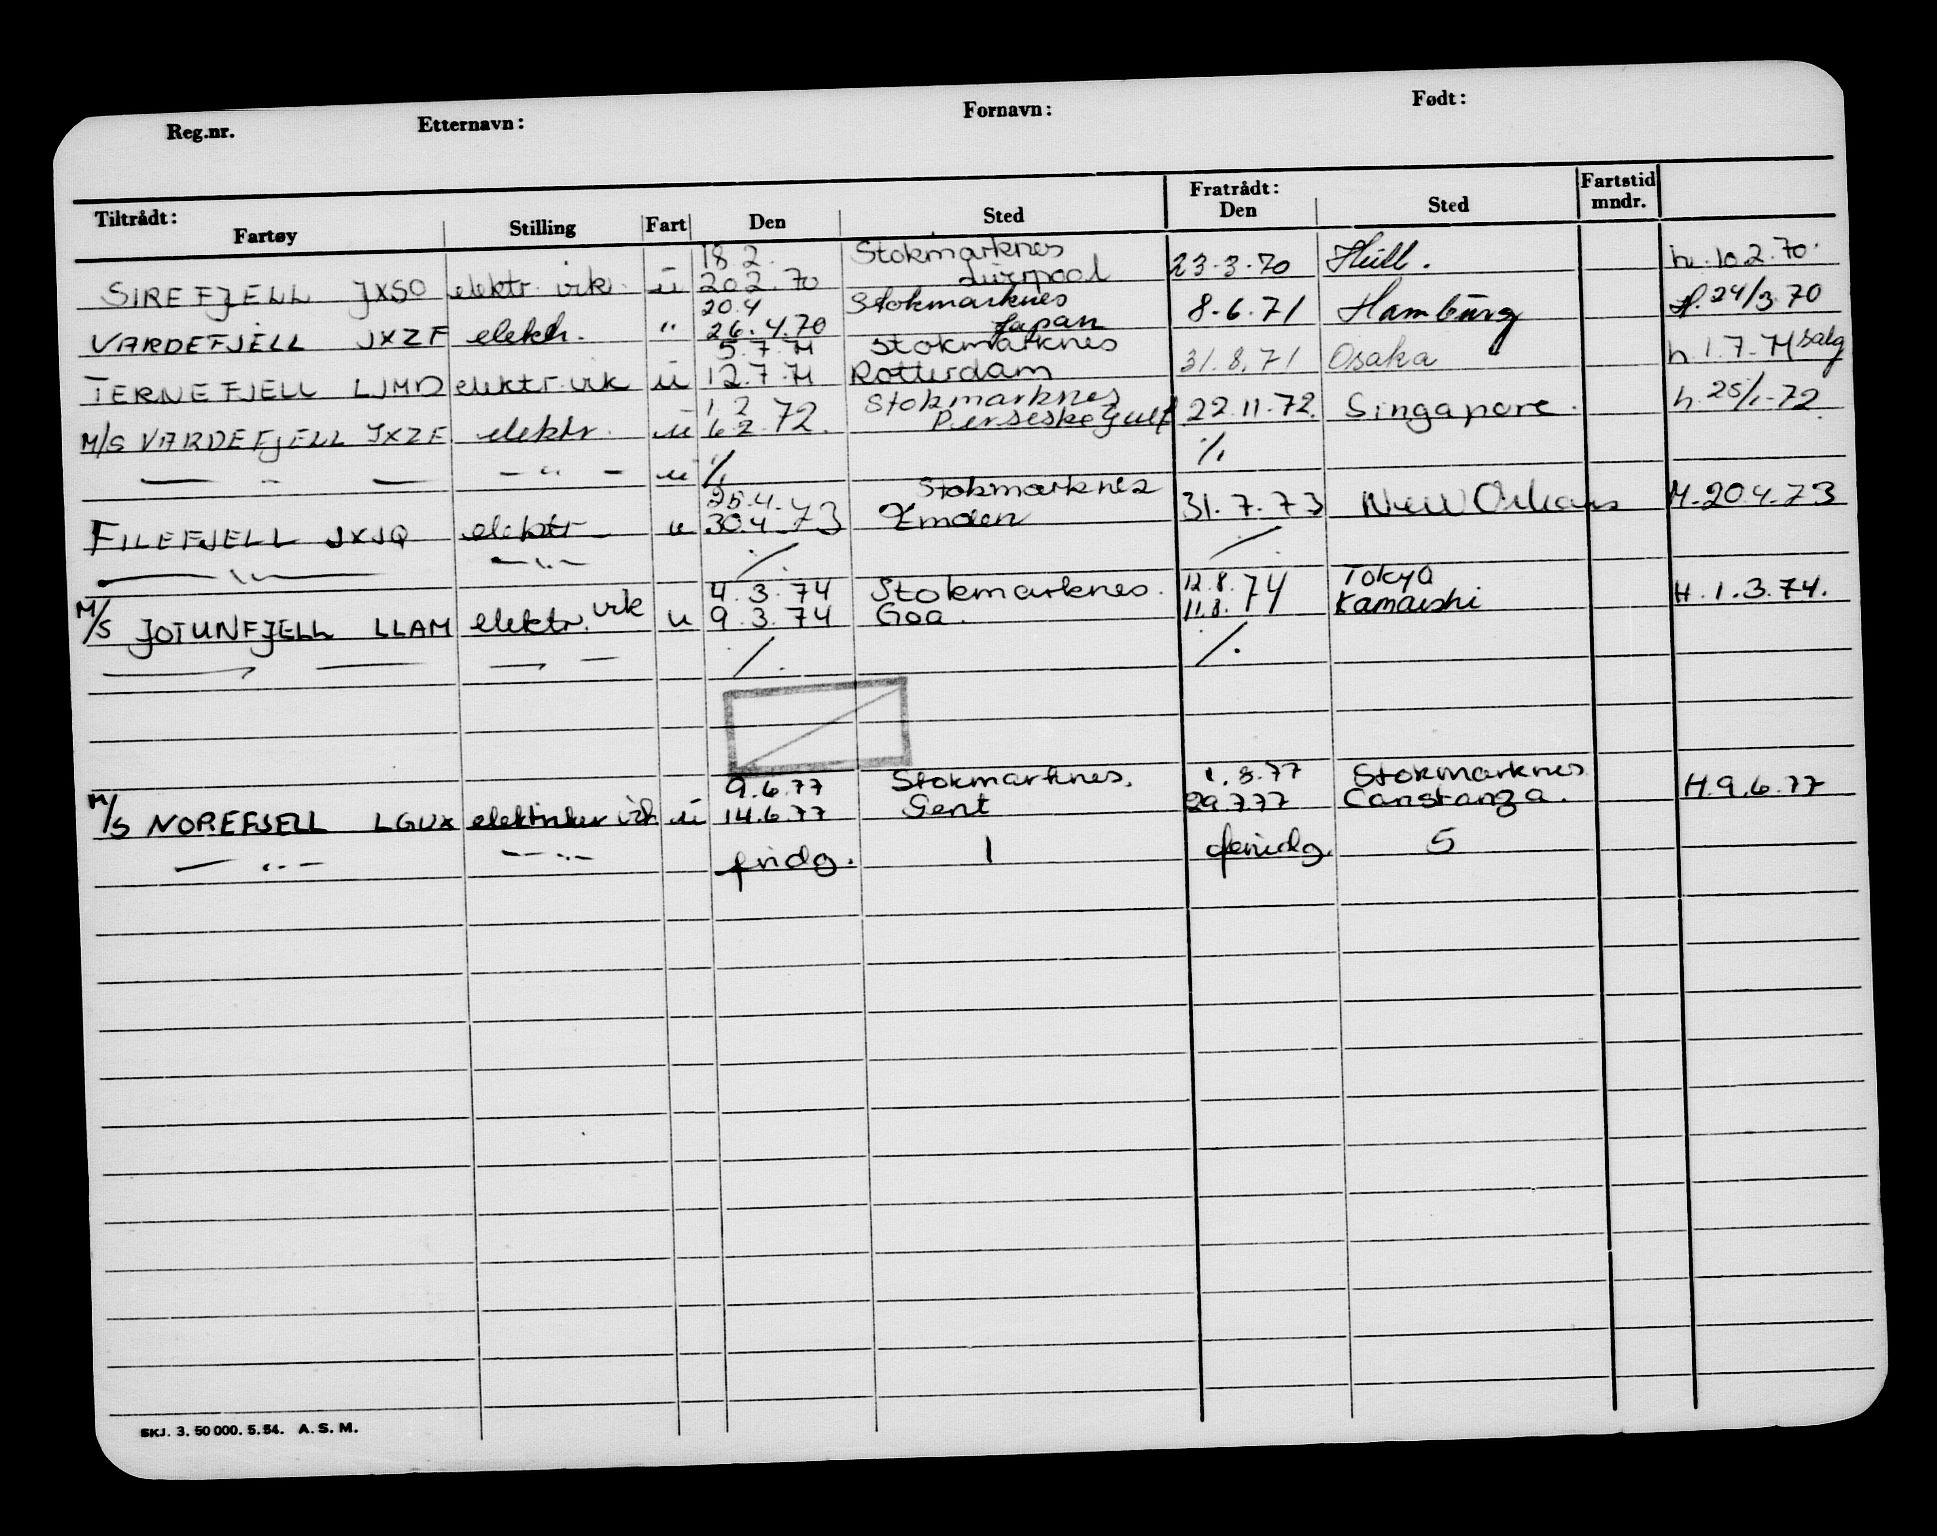 Reg.nr. Etternavn: Fornavn: Født:
Tiltrådt: Fratrådt: Fartstid
Fartøy Stilling Fart Den Sted Den Sted mndr.
18 2. Stokmarknes
SIREFJELL JXSO elektr. virk. u 20 2. 70 Liverpool 23.3.70 Hull. h. 10.2.70.
20.4 Stokmarknes
VARDEFJELL JXZF elektr. " 26.4.70 Japan 8.6.71 Hamburg H. 24/3.70
5.7.71 Stokmarknes
TERNEFJELL LJMD elektr. virk u 12.7.71 Rotterdam 31.8.71 Osaka h. 1.7.71 salg
1 2 Stokmarknes
M/S VARDEFJELL JXZF elektr. u 6 2 72. Perseske Gulf 22.11.72. Singapore. h. 25/1-72.
— " — — " — u ./. ./.
25.4. Stokmarknes
FILEFJELL JXJQ elektr u 30.4.73 Emden 31.7.73 New Orleans M. 20.4.73
— " — — " — ./. ./.
4.3.74 Stokmarknes. 12.8. Tokyo
M/S JOTUNFJELL LLAM elektr. virk u 9.3.74 Goa. 11.8.74 Kamaishi H. 1.3.74.
./. ./.
9.6.77 Stokmarknes. 1.8.77 Stokmarknes
M/S NOREFJELL LGUX elektriker virk u 14.6.77 Gent 29.7.77 Constanza. H. 9.6.77
— " — — " — fridg. 1 feridg. 5
SKJ. 3. 50 000. 5. 54. A. S. M.